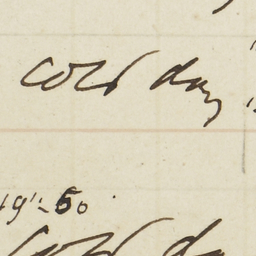 cold day
19"-50
cold da